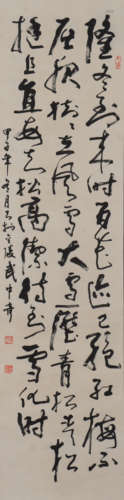 隆冬到来时百花迹已绝红梅不
屈服樹樹立风雪大雪壓青松青松
挺且直要知松高潔待到雪化时
甲子年冬月於金陵武中奇